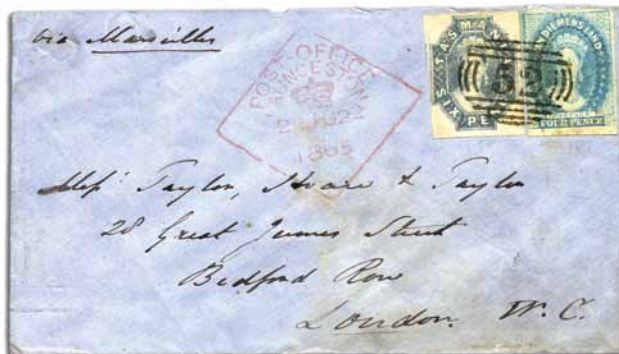 via Marseilles
POST OFFICE
LAUNCESTON
1865
TASMAN
SIX PE
DIEMENS LAND
POSTAGE
FOUR PENCE
52
Mess^rs Taylor, Hoare & Taylor
28 Great James Street
Bedford Row
London. W.C.